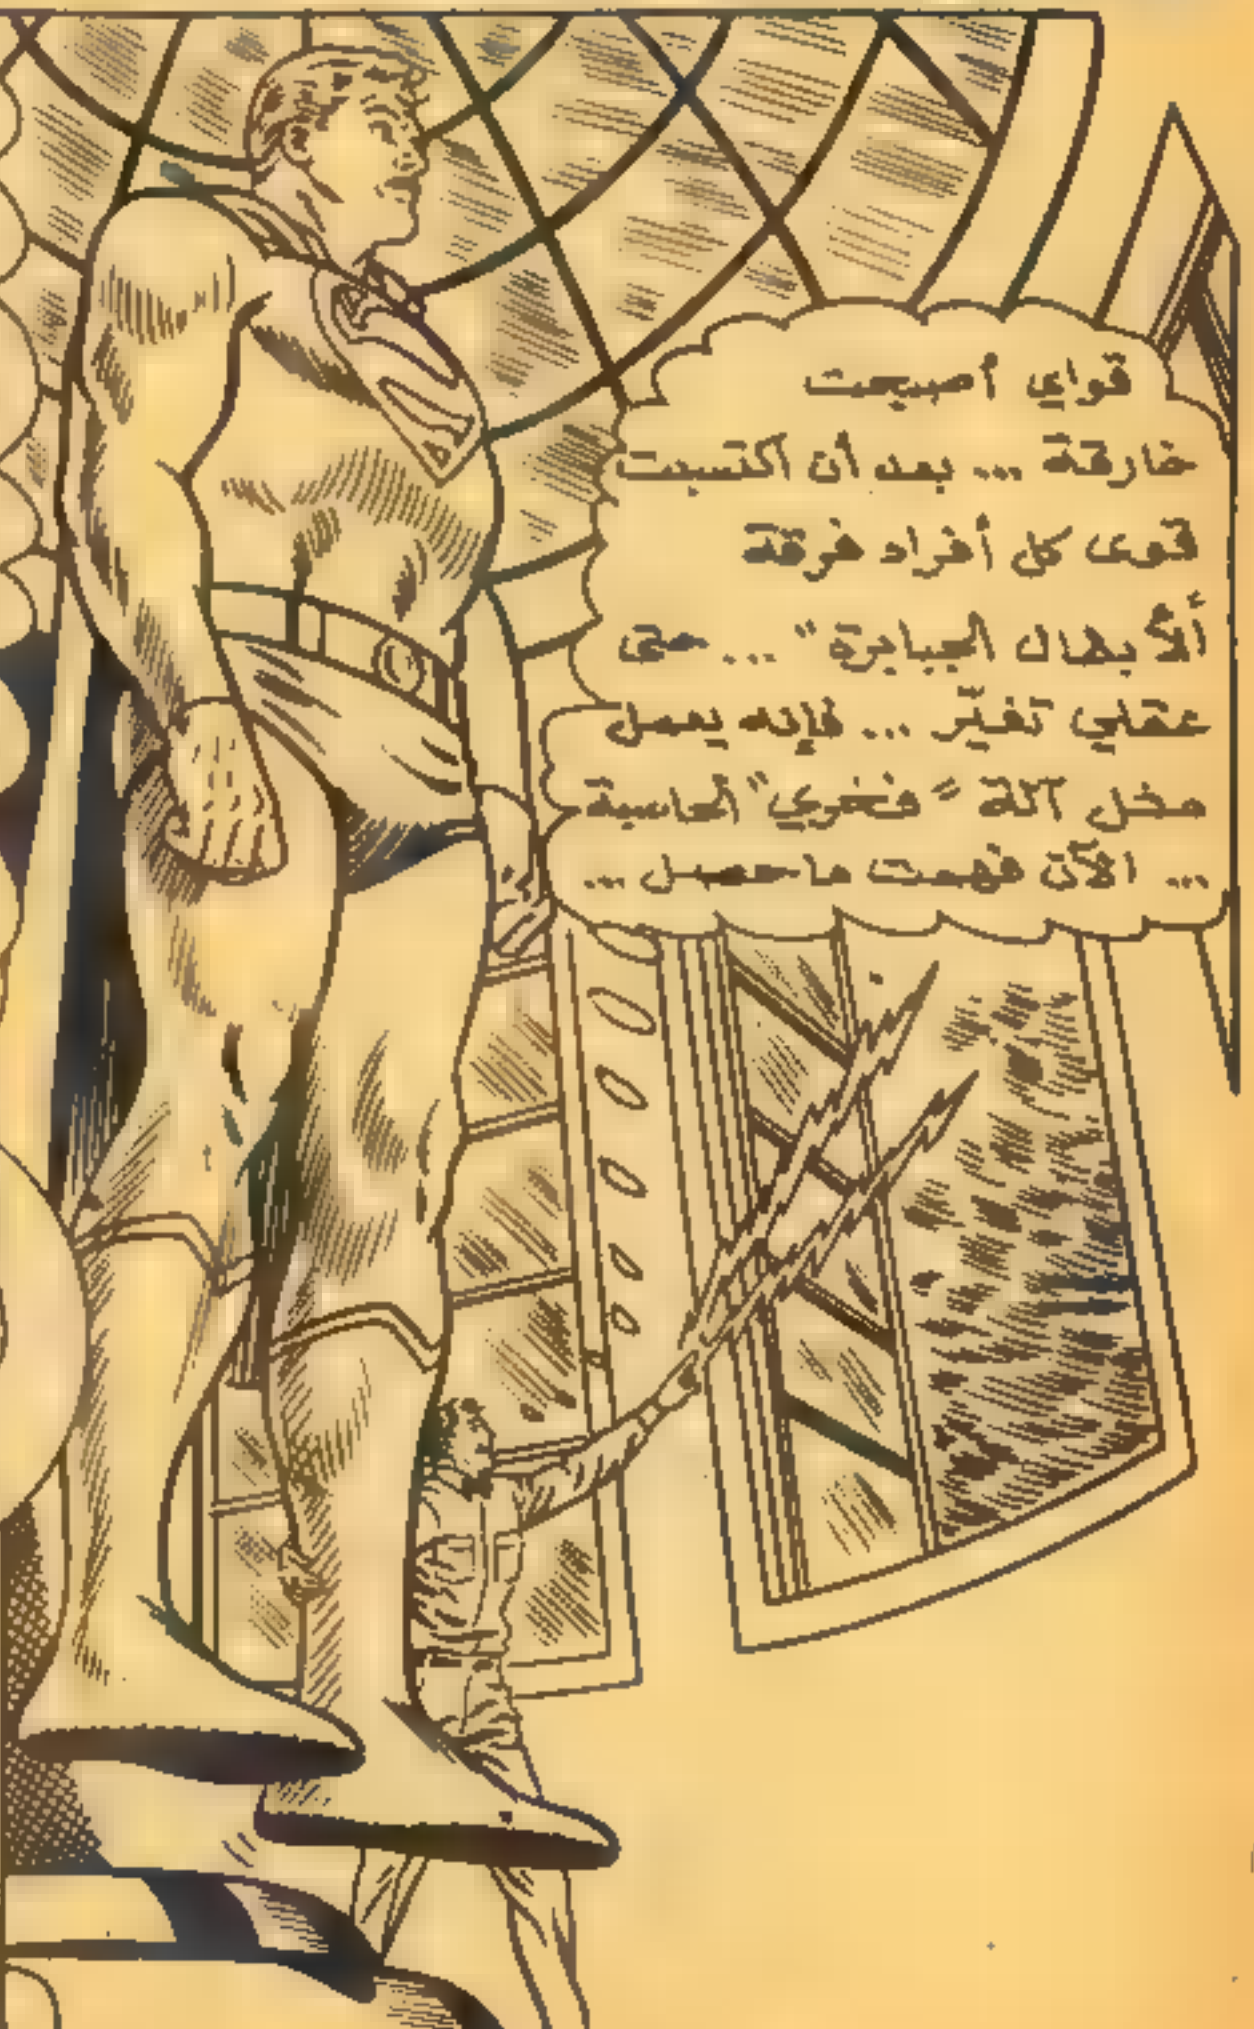 قواي أصبحت
خارقة ... بعد أن اكتسبت
قوى كل أفراد فرقة
"الأبطال الجبابرة" ... حتى
عقلي تغيّر ... فإنه يعمل
مثل آلة "فخري" الحاسبة
... الآن فهمت ما حصل ...